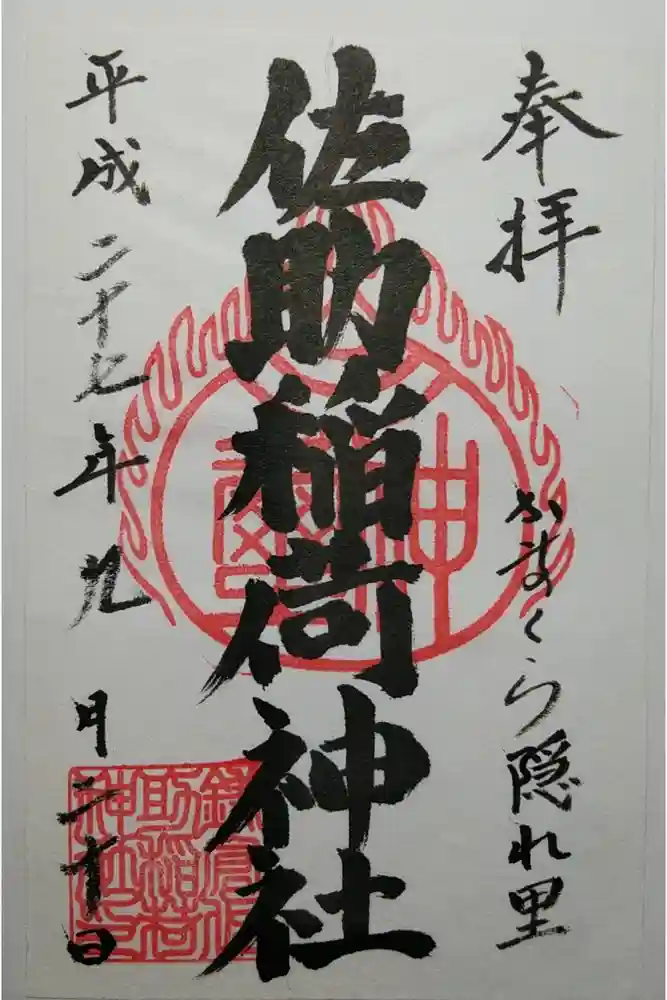 奉拝
かまくら隠れ里
佐助稲荷神社
平成二十七年九月二十日
鎌倉佐
助稲荷
神社之